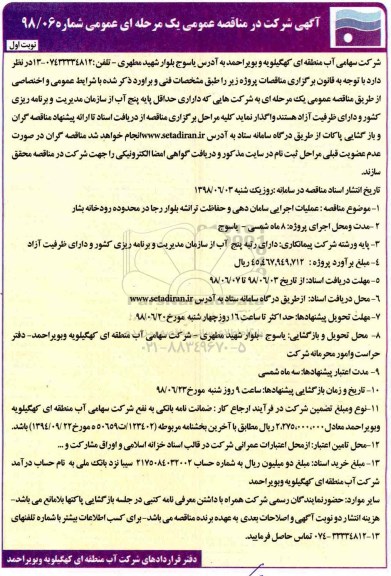 آگهی شرکت در مناقصه عمومی یک مرحله ای عمومی شماره ۹۸/۰۶
نوبت اول
شرکت سهامی آب منطقه ای کهگیلویه و بویراحمد به آدرس یاسوج بلوار شهید مطهری - تلفن: ۱۳-۰۷۴۳۳۳۳۴۸۱۲ در نظر
دارد با توجه به قانون برگزاری مناقصات پروژه زیر را طبق مشخصات فنی و برآورد ذکر شده با شرایط عمومی و اختصاصی
از طریق مناقصه عمومی یک مرحله ای به شرکت هایی که دارای حداقل پایه پنج آب از سازمان مدیریت و برنامه ریزی
کشور و دارای ظرفیت آزاد هستند واگذار نماید کلیه مراحل برگزاری مناقصه از دریافت اسناد تا ارائه پیشنهاد مناقصه گران
و باز گشایی پاکات از طریق درگاه سامانه ستاد به آدرس www.setadiran.ir انجام خواهد شد مناقصه گران در صورت
عدم عضویت قبلی مراحل ثبت نام در سایت مذکور و دریافت گواهی امضا الکترونیکی را جهت شرکت در مناقصه محقق
سازند.
تاریخ انتشار اسناد مناقصه در سامانه :روزیک شنبه ۱۳۹۸/۰۶/۰۳
۱- موضوع مناقصه : عملیات اجرایی سامان دهی و حفاظت ترانشه بلوار رجا در محدوده رودخانه بشار
۲- مدت ومحل اجرای پروژه: ۸ ماه شمسی - یاسوج
۳- پایه ورشته شرکت پیمانکاری: دارای رتبه پنج آب از سازمان مدیریت و برنامه ریزی کشور و دارای ظرفیت آزاد
۴- مبلغ برآورد پروژه : ۴۵,۴۶۷,۹۴۹,۷۱۲ ریال
۵- مهلت دریافت اسناد: از تاریخ ۹۸/۰۶/۰۳ تا ۹۸/۰۶/۰۷
۶- محل دریافت اسناد: ازطریق درگاه سامانه ستاد به آدرس www.setadiran.ir
۷- مهلت تحویل پیشنهادها: حداکثر تا ساعت ۱۶ روز چهار شنبه مورخ ۹۸/۰۶/۲۰
۸- محل تحویل و بازگشایی: یاسوج بلوار شهید مطهری - شرکت سهامی آب منطقه ای کهگیلویه وبویراحمد- دفتر
حراست وامور محرمانه شرکت
۹- مدت اعتبار پیشنهادها: سه ماه شمسی
۱۰- تاریخ و زمان بازگشایی پیشنهادها: ساعت ۹ روز شنبه مورخ ۹۸/۰۶/۲۳
۱۱- نوع ومبلغ تضمین شرکت در فرآیند ارجاع کار : ضمانت نامه بانکی به نفع شرکت سهامی آب منطقه ای کهگیلویه
وبویراحمد معادل ۲,۲۷۵,۰۰۰,۰۰۰ ریال مطابق با آخرین بخشنامه مربوطه (۱۲۳۴۰۲/ت۵۰۶۵۹ ه مورخ ۱۳۹۴/۰۹/۲۲) باشد.
۱۲- محل تامین اعتبار: ازمحل اعتبارات عمرانی شرکت در قالب اسناد خزانه اسلامی و اوراق مشارکت و ...
۱۳- مبلغ خرید اسناد: مبلغ دو میلیون ریال به شماره حساب ۲۱۷۵۰۸۴۰۳۲۰۰۲ سیبا نزد بانک ملی به نام حساب درآمد
شرکت آب منطقه ای کهگیلویه وبویراحمد
سایر موارد: حضور نمایندگان رسمی شرکت همراه با داشتن معرفی نامه کتبی در جلسه بازگشایی پاکتها بلامانع می باشد-
هزینه انتشار دو نوبت آگهی و اصلاحات بعدی به عهده برنده مناقصه می باشد- برای کسب اطلاعات بیشتر با شماره تلفنهای
۱۳-۳۳۳۳۴۸۱۲-۰۷۴ تماس حاصل فرمایید.
دفتر قراردادهای شرکت آب منطقه ای کهگیلویه وبویراحمد
۰۲۱-۸۸۳۴۹۶۷۰-۵